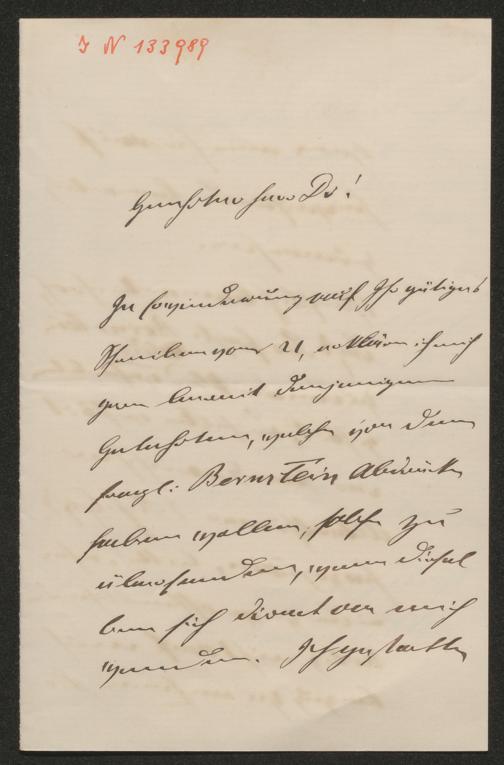 I N 133989
Geehrter Herr Dr!
In Erwiederung auf Ihr gütiges
Schreiben vom 21, erkläre ich mich
gern bereit denjenigen
Gelehrten, welche von dem
fragl: Bernstein Abdrücke
haben wollen, solche zu
übersenden, wenn diesel
ben sich direct an mich
wenden. Ich gestatte